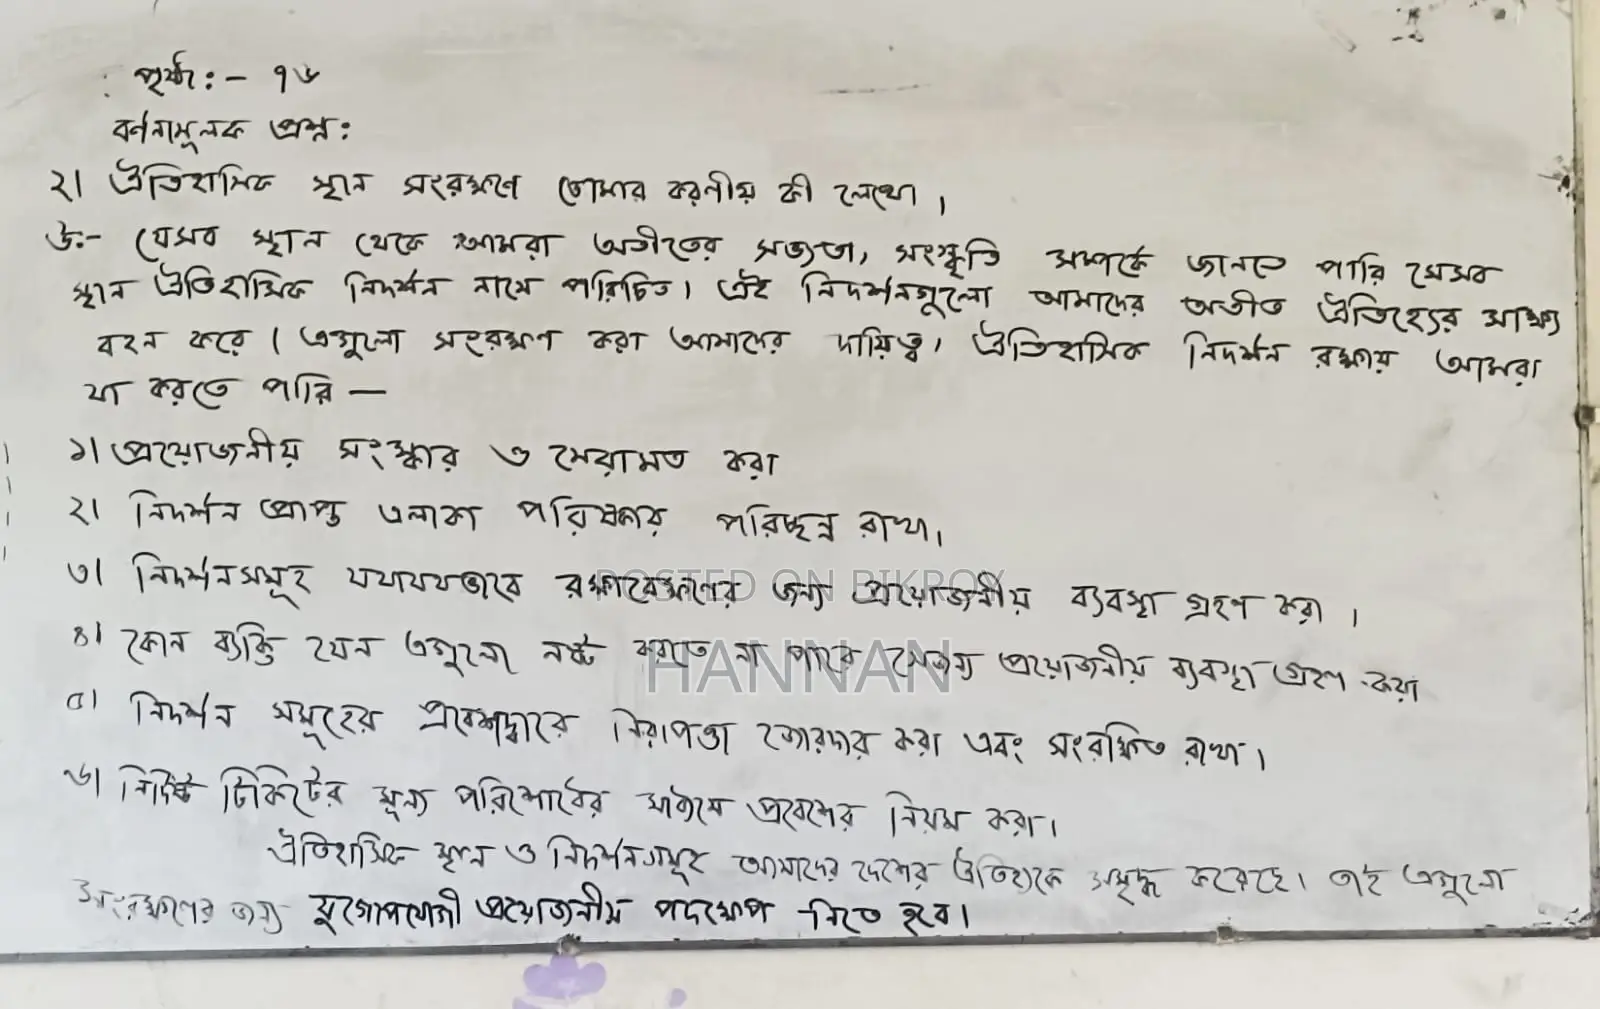 পৃষ্ঠা:- ৭৬
বর্ণনামূলক প্রশ্ন:
২। ঐতিহাসিক স্থান সংরক্ষণে তোমার করণীয় কী লেখো।
উ:- যেসব স্থান থেকে আমরা অতীতের সভ্যতা, সংস্কৃতি সম্পর্কে জানতে পারি সেসব
স্থান ঐতিহাসিক নিদর্শন নামে পরিচিত। এই নিদর্শনগুলো আমাদের অতীত ঐতিহ্যের সাক্ষ্য
বহন করে। এগুলো সংরক্ষণ করা আমাদের দায়িত্ব। ঐতিহাসিক নিদর্শন রক্ষায় আমরা
যা করতে পারি —
১। প্রয়োজনীয় সংস্কার ও মেরামত করা
২। নিদর্শন প্রাপ্ত এলাকা পরিষ্কার পরিচ্ছন্ন রাখা।
৩। নিদর্শনসমূহ যথাযথভাবে রক্ষাবেক্ষণের জন্য প্রয়োজনীয় ব্যবস্থা গ্রহণ করা।
POSTED ON BIKROY
৪। কোন ব্যক্তি যেন এগুলো নষ্ট করতে না পারে সেজন্য প্রয়োজনীয় ব্যবস্থা গ্রহণ করা
HANNAN
৫। নিদর্শন সমূহের প্রবেশদ্বারে নিরাপত্তা জোরদার করা এবং সংরক্ষিত রাখা।
৬। নির্দিষ্ট টিকিটের মূল্য পরিশোধের মাধ্যমে প্রবেশের নিয়ম করা।
ঐতিহাসিক স্থান ও নিদর্শনসমূহ আমাদের দেশের ঐতিহ্যকে সমৃদ্ধ করেছে। তাই এগুলো
সংরক্ষণের জন্য যুগোপযোগী প্রয়োজনীয় পদক্ষেপ নিতে হবে।